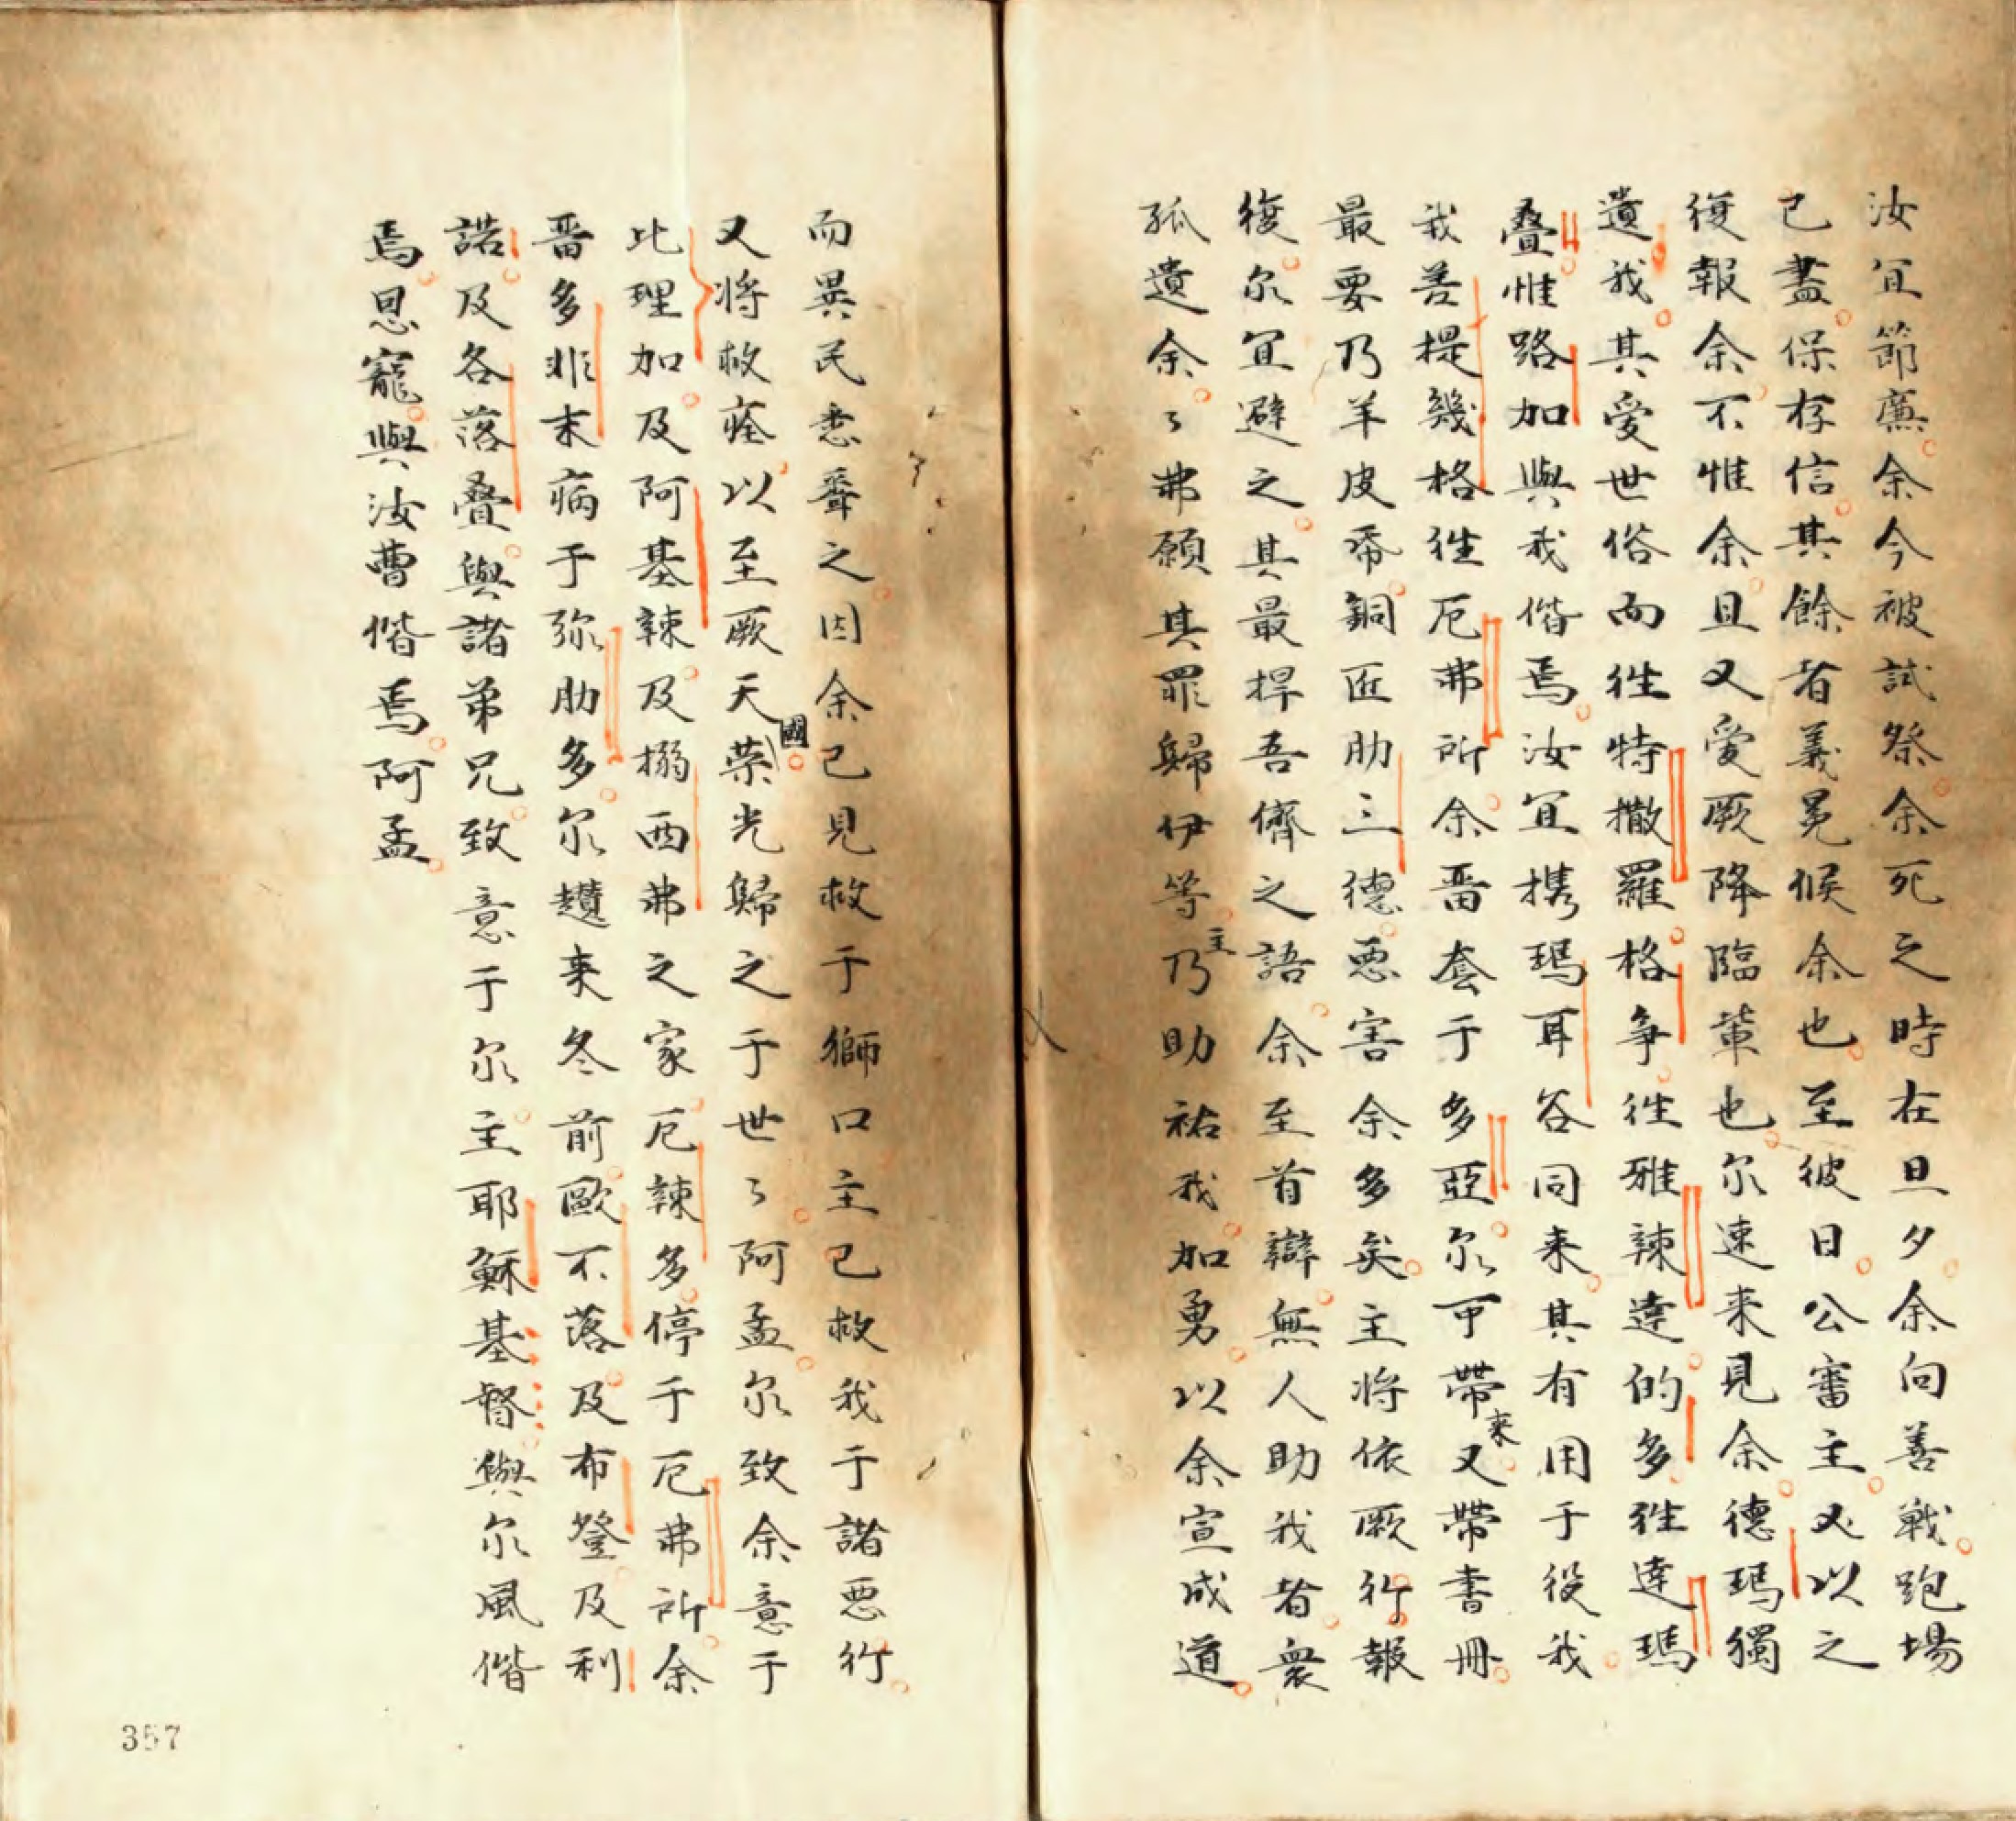 汝宜節廉余今被試祭余死之時在旦夕余向善戰跑場
已盡保存信其餘者義冕候余也至彼日公審主又以之
復報余不惟余且又愛厥降臨輩也尔速來見余德瑪獨
遺我其愛世俗而徃特撒羅格爭徃雅辣達的多徃達瑪
叠惟路加與我偕焉汝宜携瑪耳谷同来其有用于役我
我善提幾格徃厄弗所余畱套于多亞尔可帶来又帶書冊
最要乃羊皮帋銅匠肋三德惡害余多矣主將依厥行報
復尔宜避之其最捍吾儕之語余至首辯無人助我者衆
孤遺余〻弗願其罪歸伊等主乃助祐我加勇以余宣成道
而異民悉聋之因余已見救于獅口主已救我于諸惡行
又將救痊以至厥天國荣光歸之于世〻阿孟尔致余意于
比理加及阿基辣及搦西弗之家厄辣多停于厄弗所余
畱多非末病于弥肋多尔趲来冬前歐不落及布登及利
諾及各落叠與諸弟兄致意于尔主耶穌基督與尔風偕
焉恩寵與汝曹偕焉阿孟
357